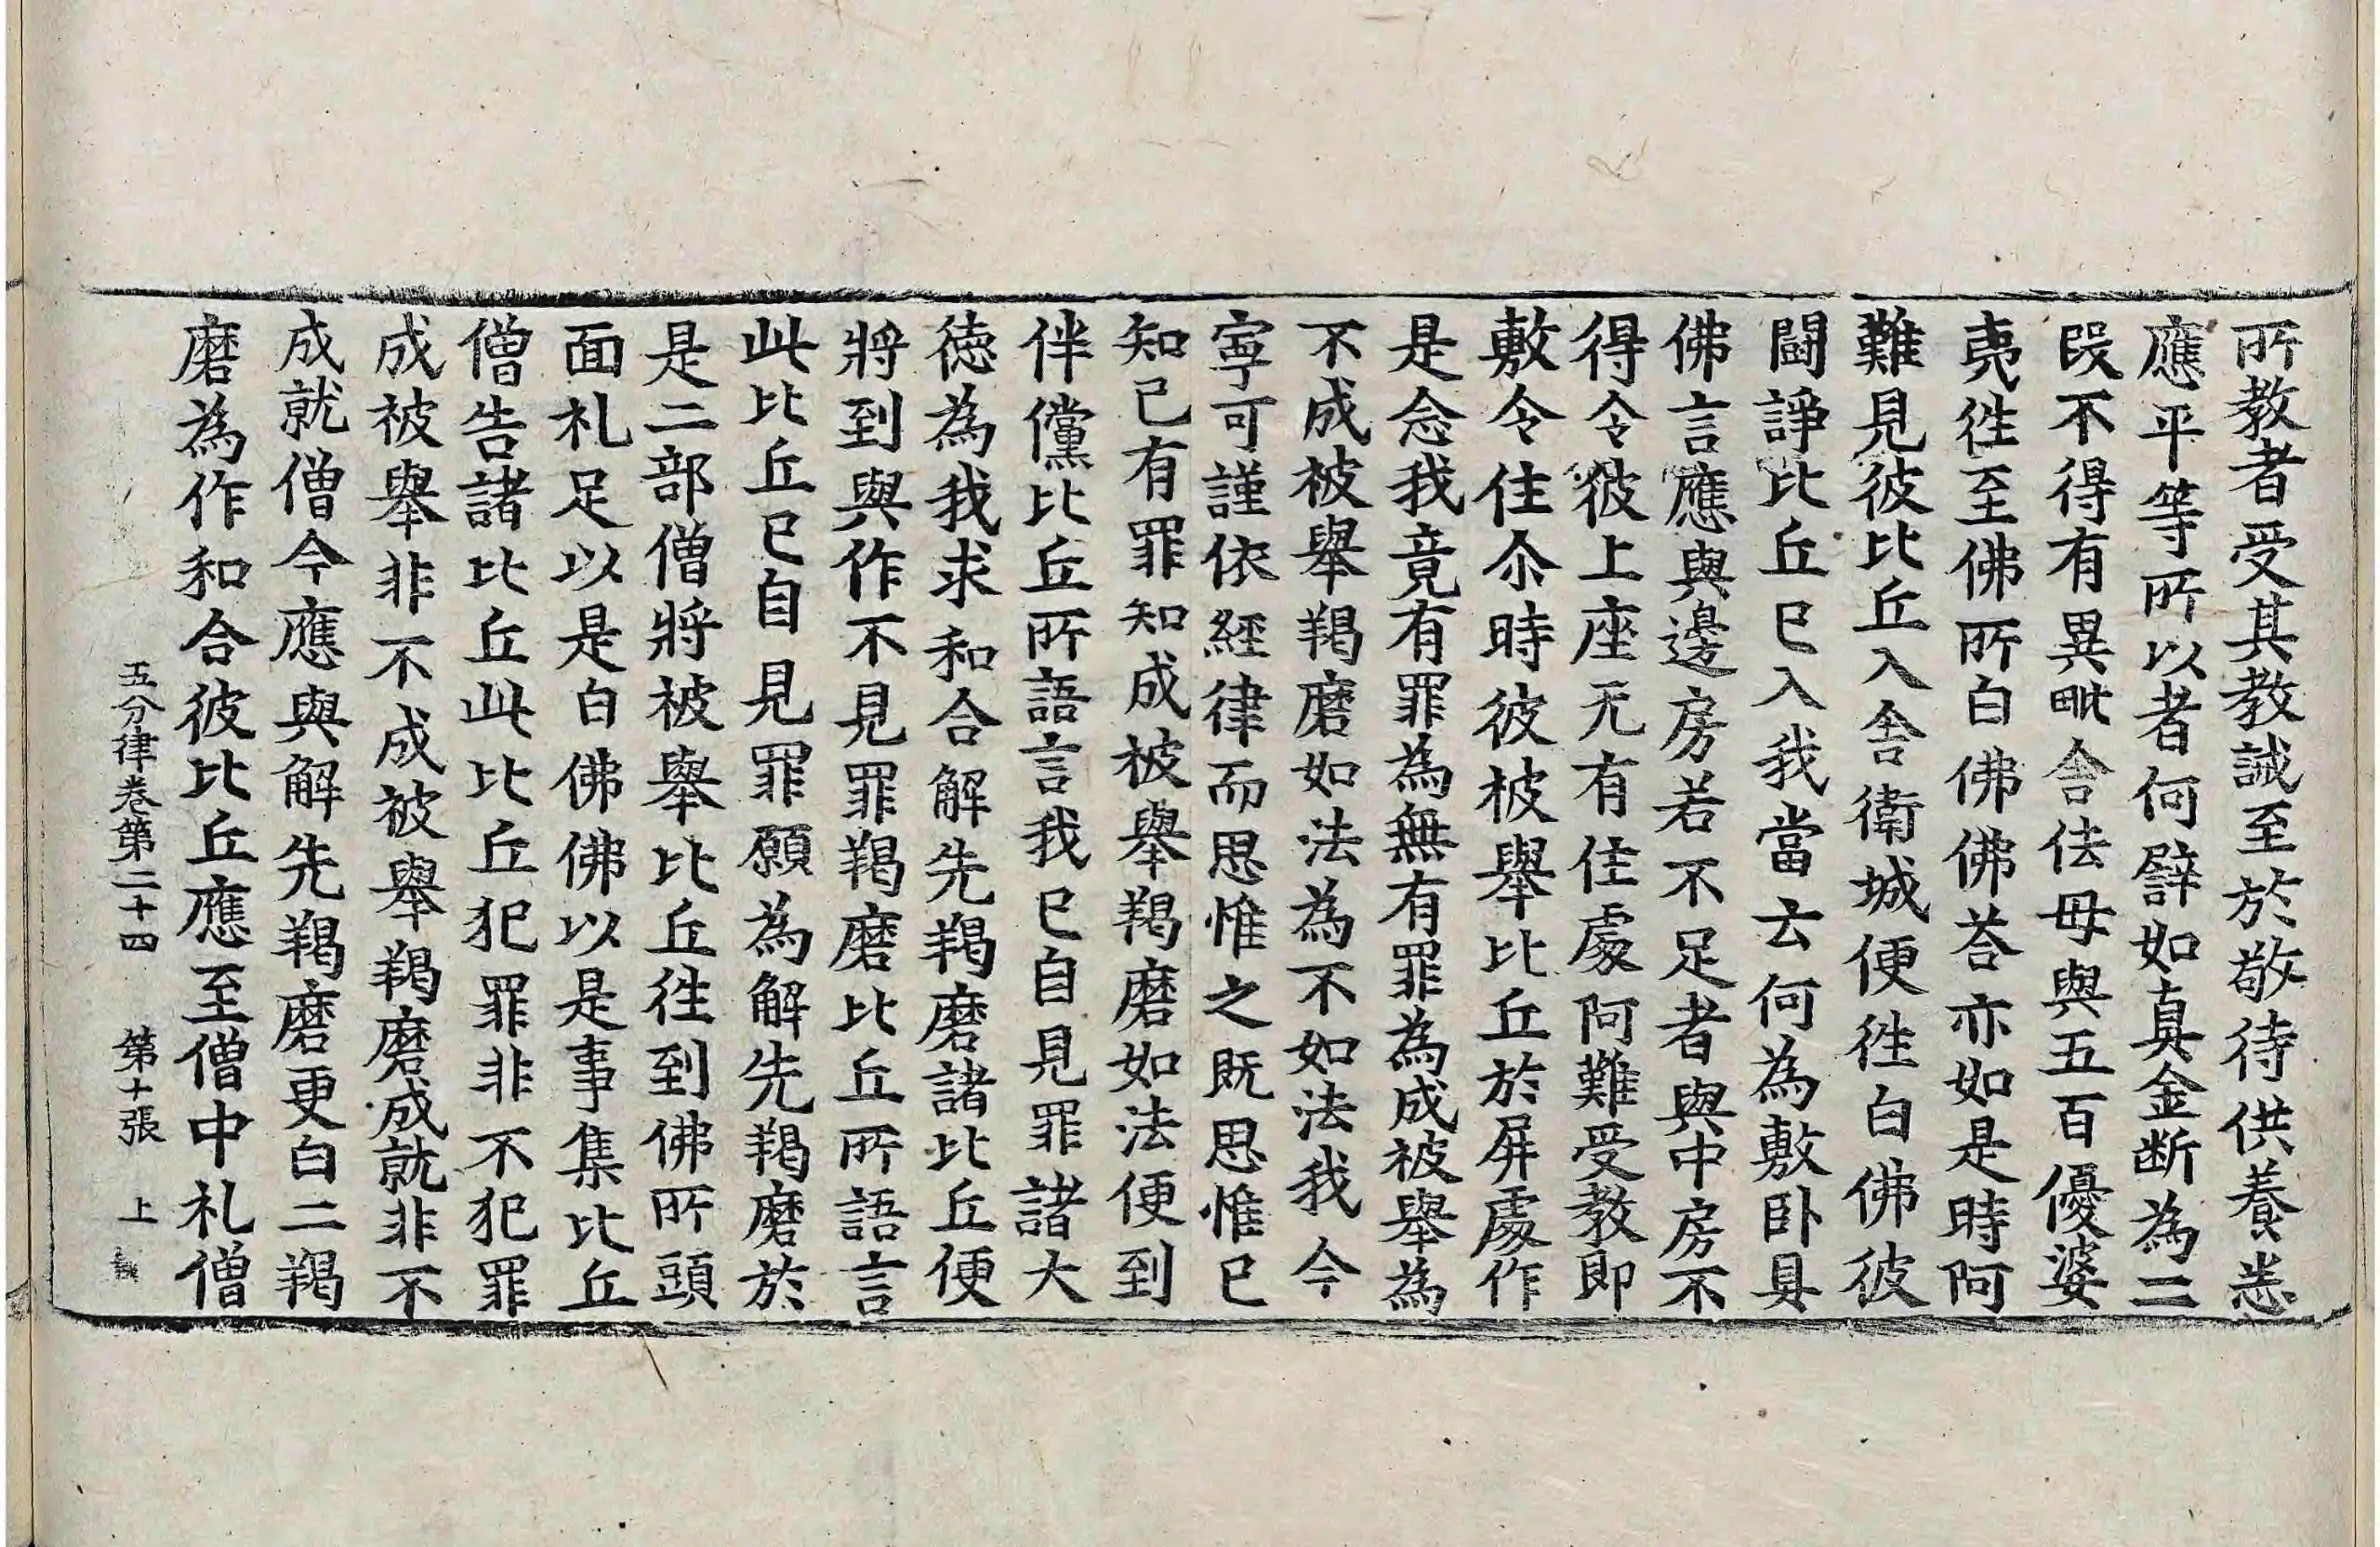 所教者受其教誡至於敬待供養悉
應平等所以者何譬如真金断為二
段不得有異毗舍佉母與五百優婆
夷徃至佛所白佛佛荅亦如是時阿
難見彼比丘入舍衛城便徃白佛彼
鬪諍比丘已入我當云何為敷卧具
佛言應與邊房若不足者與中房不
得令彼上座无有住處阿難受教即
敷令住尒時彼被舉比丘於屏處作
是念我竟有罪為無有罪為成被舉為
不成被舉羯磨如法為不如法我今
寧可謹依經律而思惟之既思惟已
知已有罪知成被舉羯磨如法便到
伴儻比丘所語言我已自見罪諸大
徳為我求和合解先羯磨諸比丘便
將到與作不見罪羯磨比丘所語言
此比丘已自見罪願為解先羯磨於
是二部僧將被舉比丘徃到佛所頭
面礼足以是白佛佛以是事集比丘
僧告諸比丘此比丘犯罪非不犯罪
成被舉非不成被舉羯磨成就非不
成就僧今應與解先羯磨更白二羯
磨為作和合彼比丘應至僧中礼僧
五分律卷第二十四 第十張 上